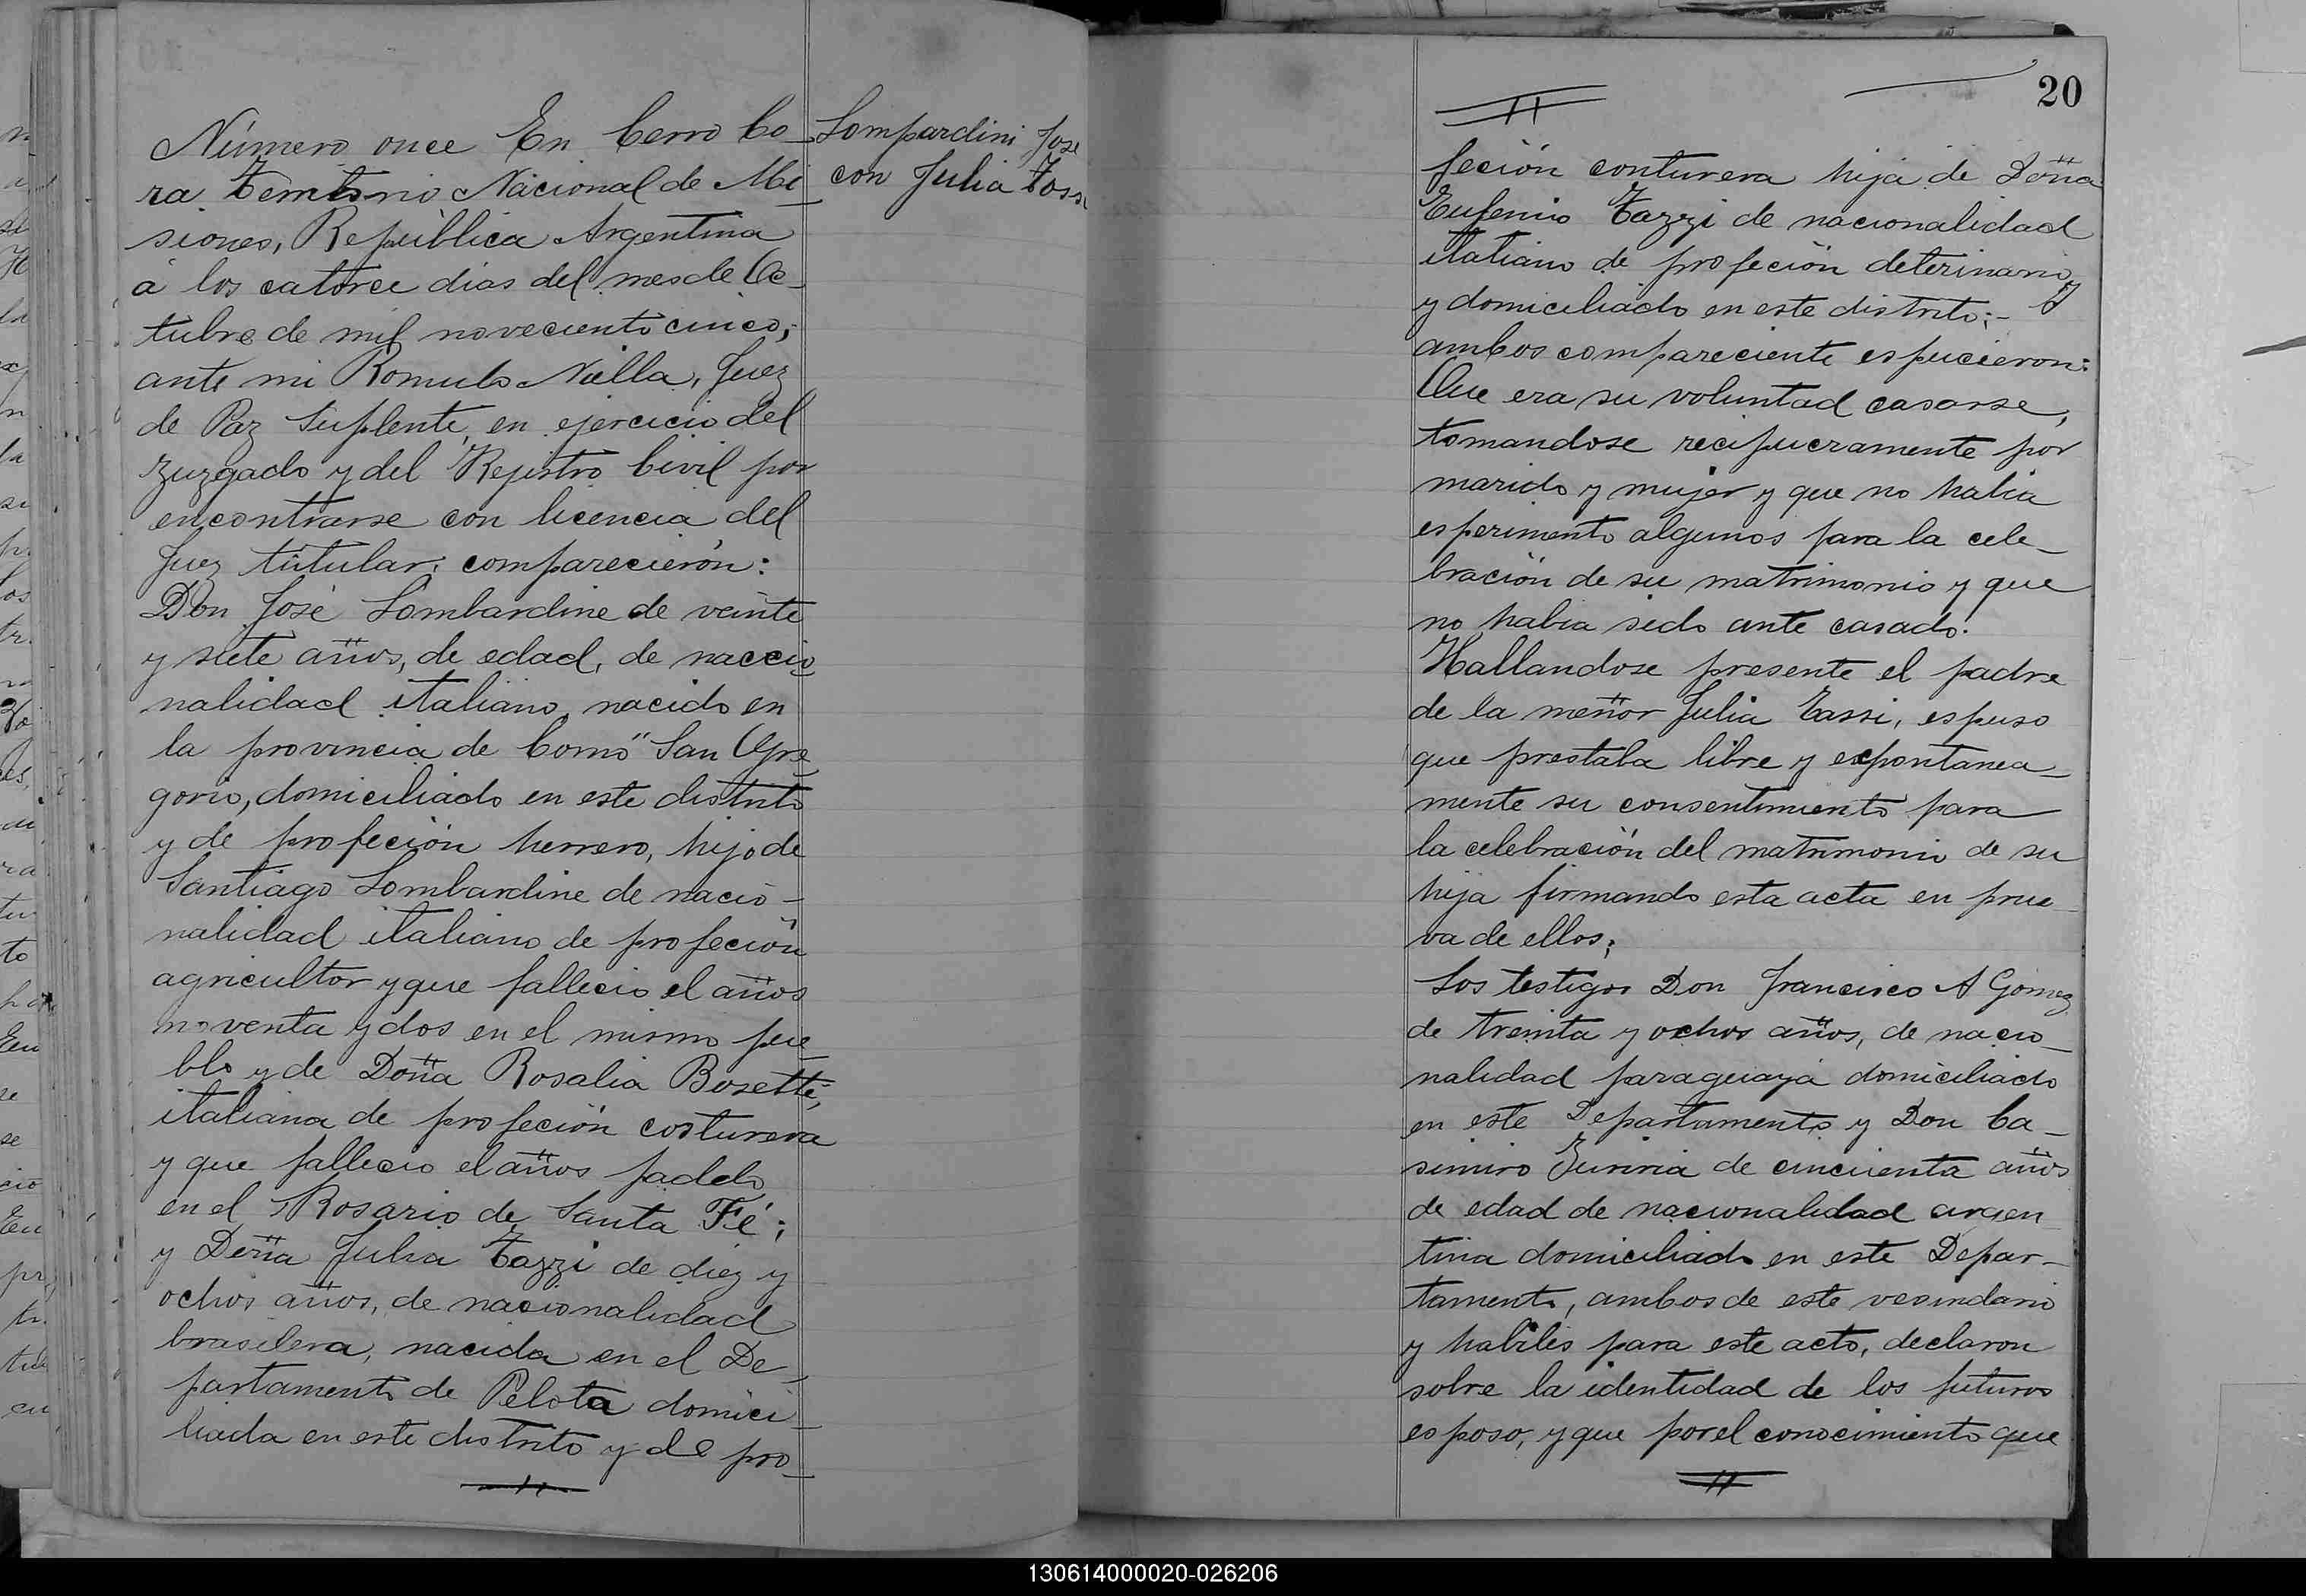 Número once En Cerro Co-
ra Territorio Nacional de Mi-
siones, República Argentina
á los catorce dias del mes de Oc-
tubre de mil noveciento cinco;
ante mi Romulo Niella, Juez
de Paz Suplente, en ejercicio del
Zuzgado y del Rejistro Civil por
encontrarse con licencia del
Juez titular, comparecierón:
Don José Lombardine de veinte
y siete años, de edad, de naccio
nalidad italiano, nacido en
la provincia de Como "San Gre
gorio, domiciliado en este distrito
y de profeción herrero, hijo de
Santiago Lombardine de nacio-
nalidad italiano de profeción
agricultor y que fallecio el años
noventa y dos en el mismo pue
blo y de Doña Rosalia Bosette,
italiana de profeción costurera
y que fallecio el años padelo
en el Rosario de Santa Fé;
y Doña Julia Tazzi de diez y
ochos años, de nacionalidad
brasilera, nacida en el De-
partamento de Pelota domici-
liada en este distrito y de pro-
Lompardini Jose
con Julia
20
feción conturera hija de Doña
Eufenio Tazzi de nacionalidad
italiano de profeción deterinario
y domiciliado en este distrito;- y
ambos compareciente espucieron:
Que era su voluntad casarse,
tomandose recipucramente por
marido y mujer y que no habia
esperimento algunos para la cele-
bración de su matrimonio y que
no habia sido ante casado.
Hallandose presente el padre
de la meñor Julia Tassi, espuso
que prestaba libre y expontanea-
mente su consentimiento para
la celebración del matrimonio de su
hija firmando esta acta en prue-
va de ellos;
Los testigos Don Francisco A Gómez
de treinta y ochos años, de nacio-
nalidad paraguaya domiciliado
en este Departamento y Don Ca-
simiro de cincuenta años
de edad de nacionalidad argen
tina domiciliado en este Depar-
tamento, ambos de este vecindario
y habiles para este acto, declaron
sobre la identidad de los futuros
esposo, y que por el conocimiento que
130614000020-026206